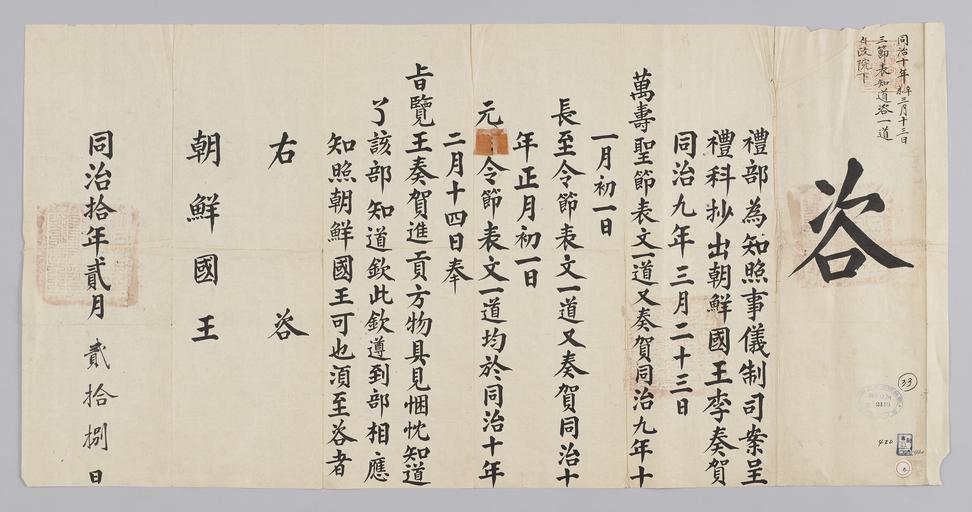 同治十年辛未三月十三日
三節表知道咨一道
政院下
咨
禮部為知照事儀制司案呈
禮科抄出朝鮮國王李奏賀
同治九年三月二十三日
萬壽聖節表文一道又奏賀同治九年十
一月初一日
長至令節表文一道又奏賀同治十
年正月初一日
元令節表文一道均於同治十年
二月十四日奉
旨覽王奏賀進貢方物具見悃忱知道
了該部知道欽此欽遵到部相應
知照朝鮮國王可也須至咨者
右咨
朝鮮國王
同治拾年貳月貳拾捌日
33
2119
420